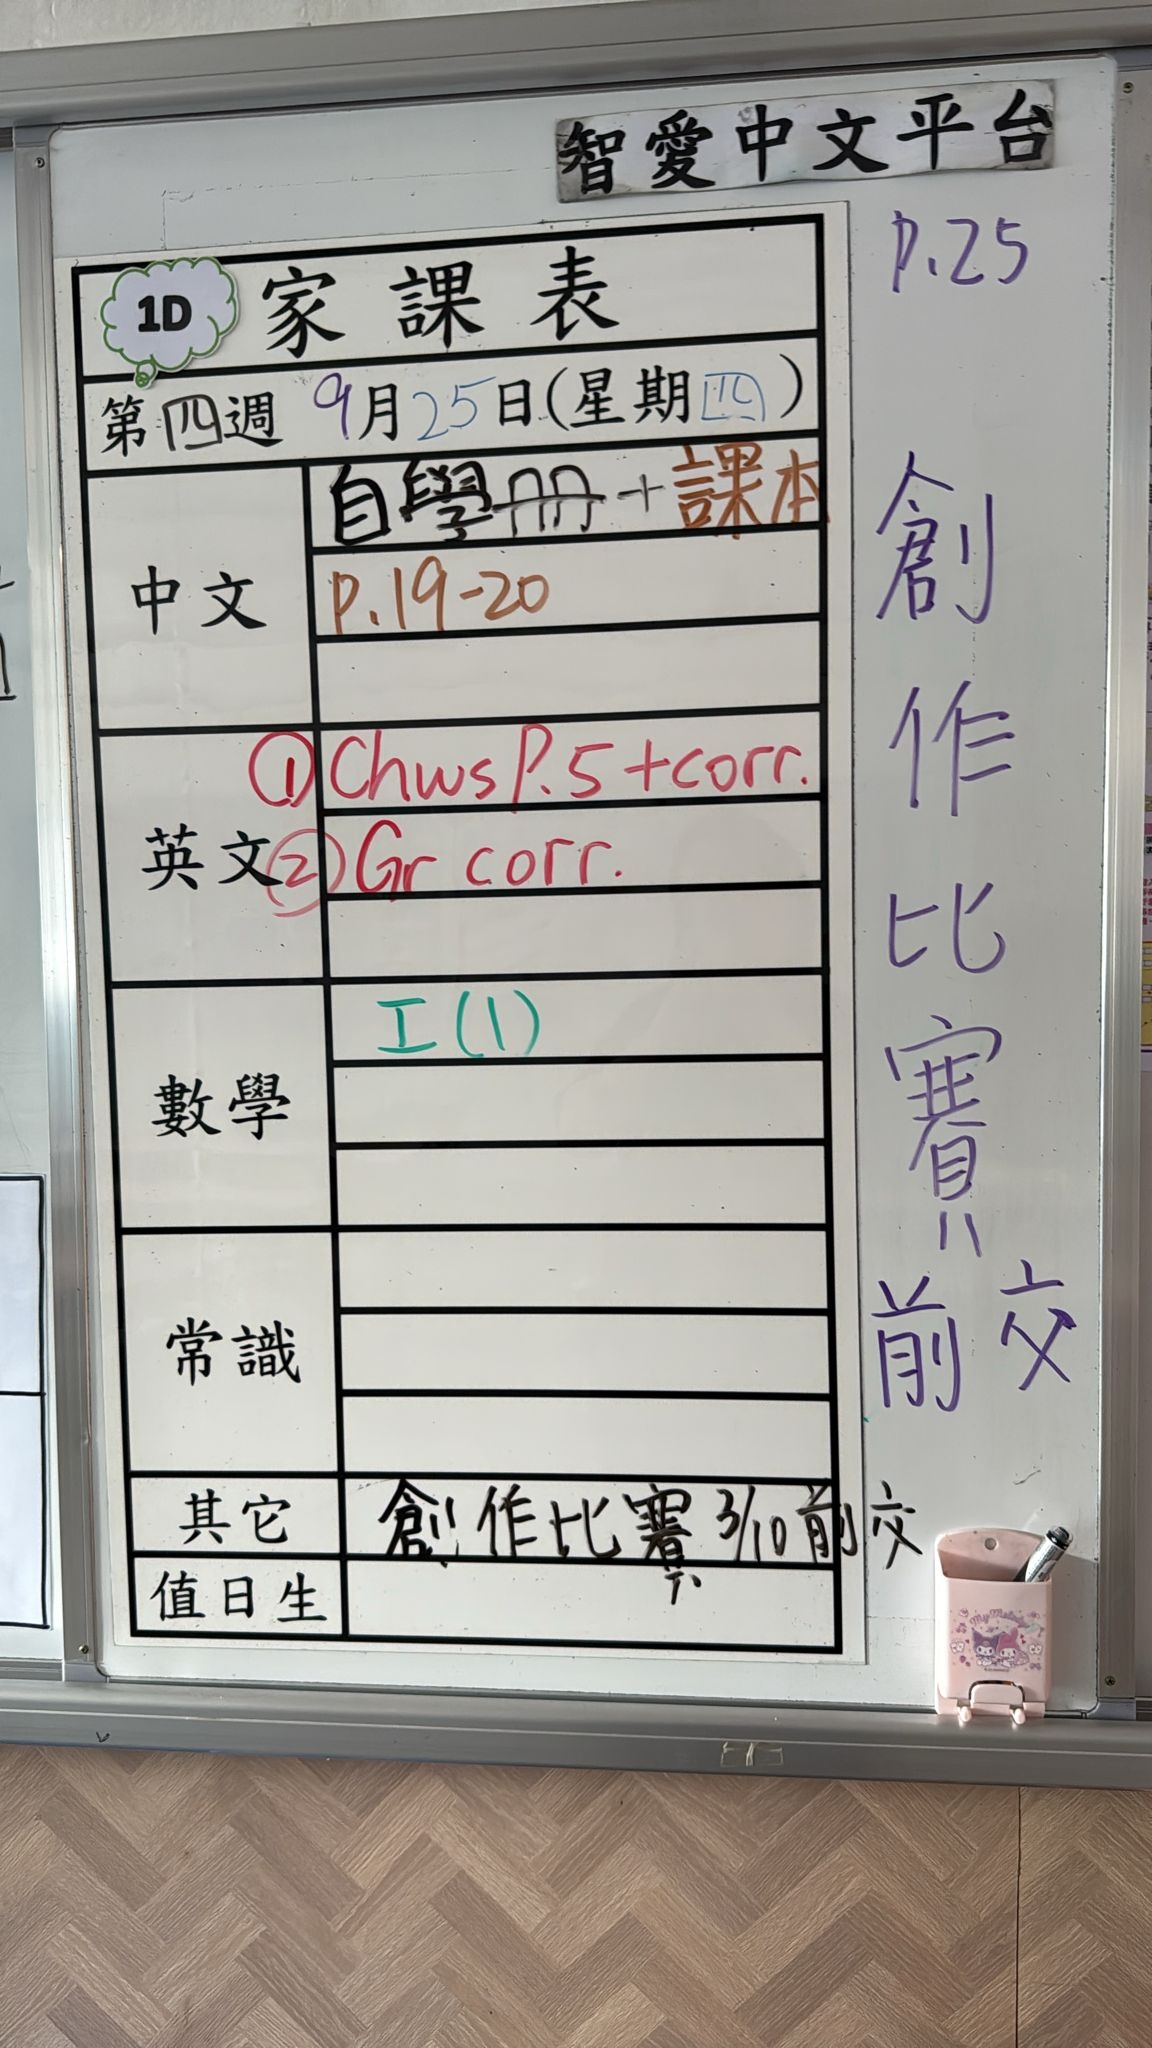 智愛中文平台
P.25
1D 家課表
第四週 9月25日(星期四)
中文
自學冊+課本
P.19-20
英文
① Chws P.5+corr.
② Gr corr.
數學
工(1)
常識
其它
創作比賽 3/10前交
值日生
創作比賽
前交
My Melody